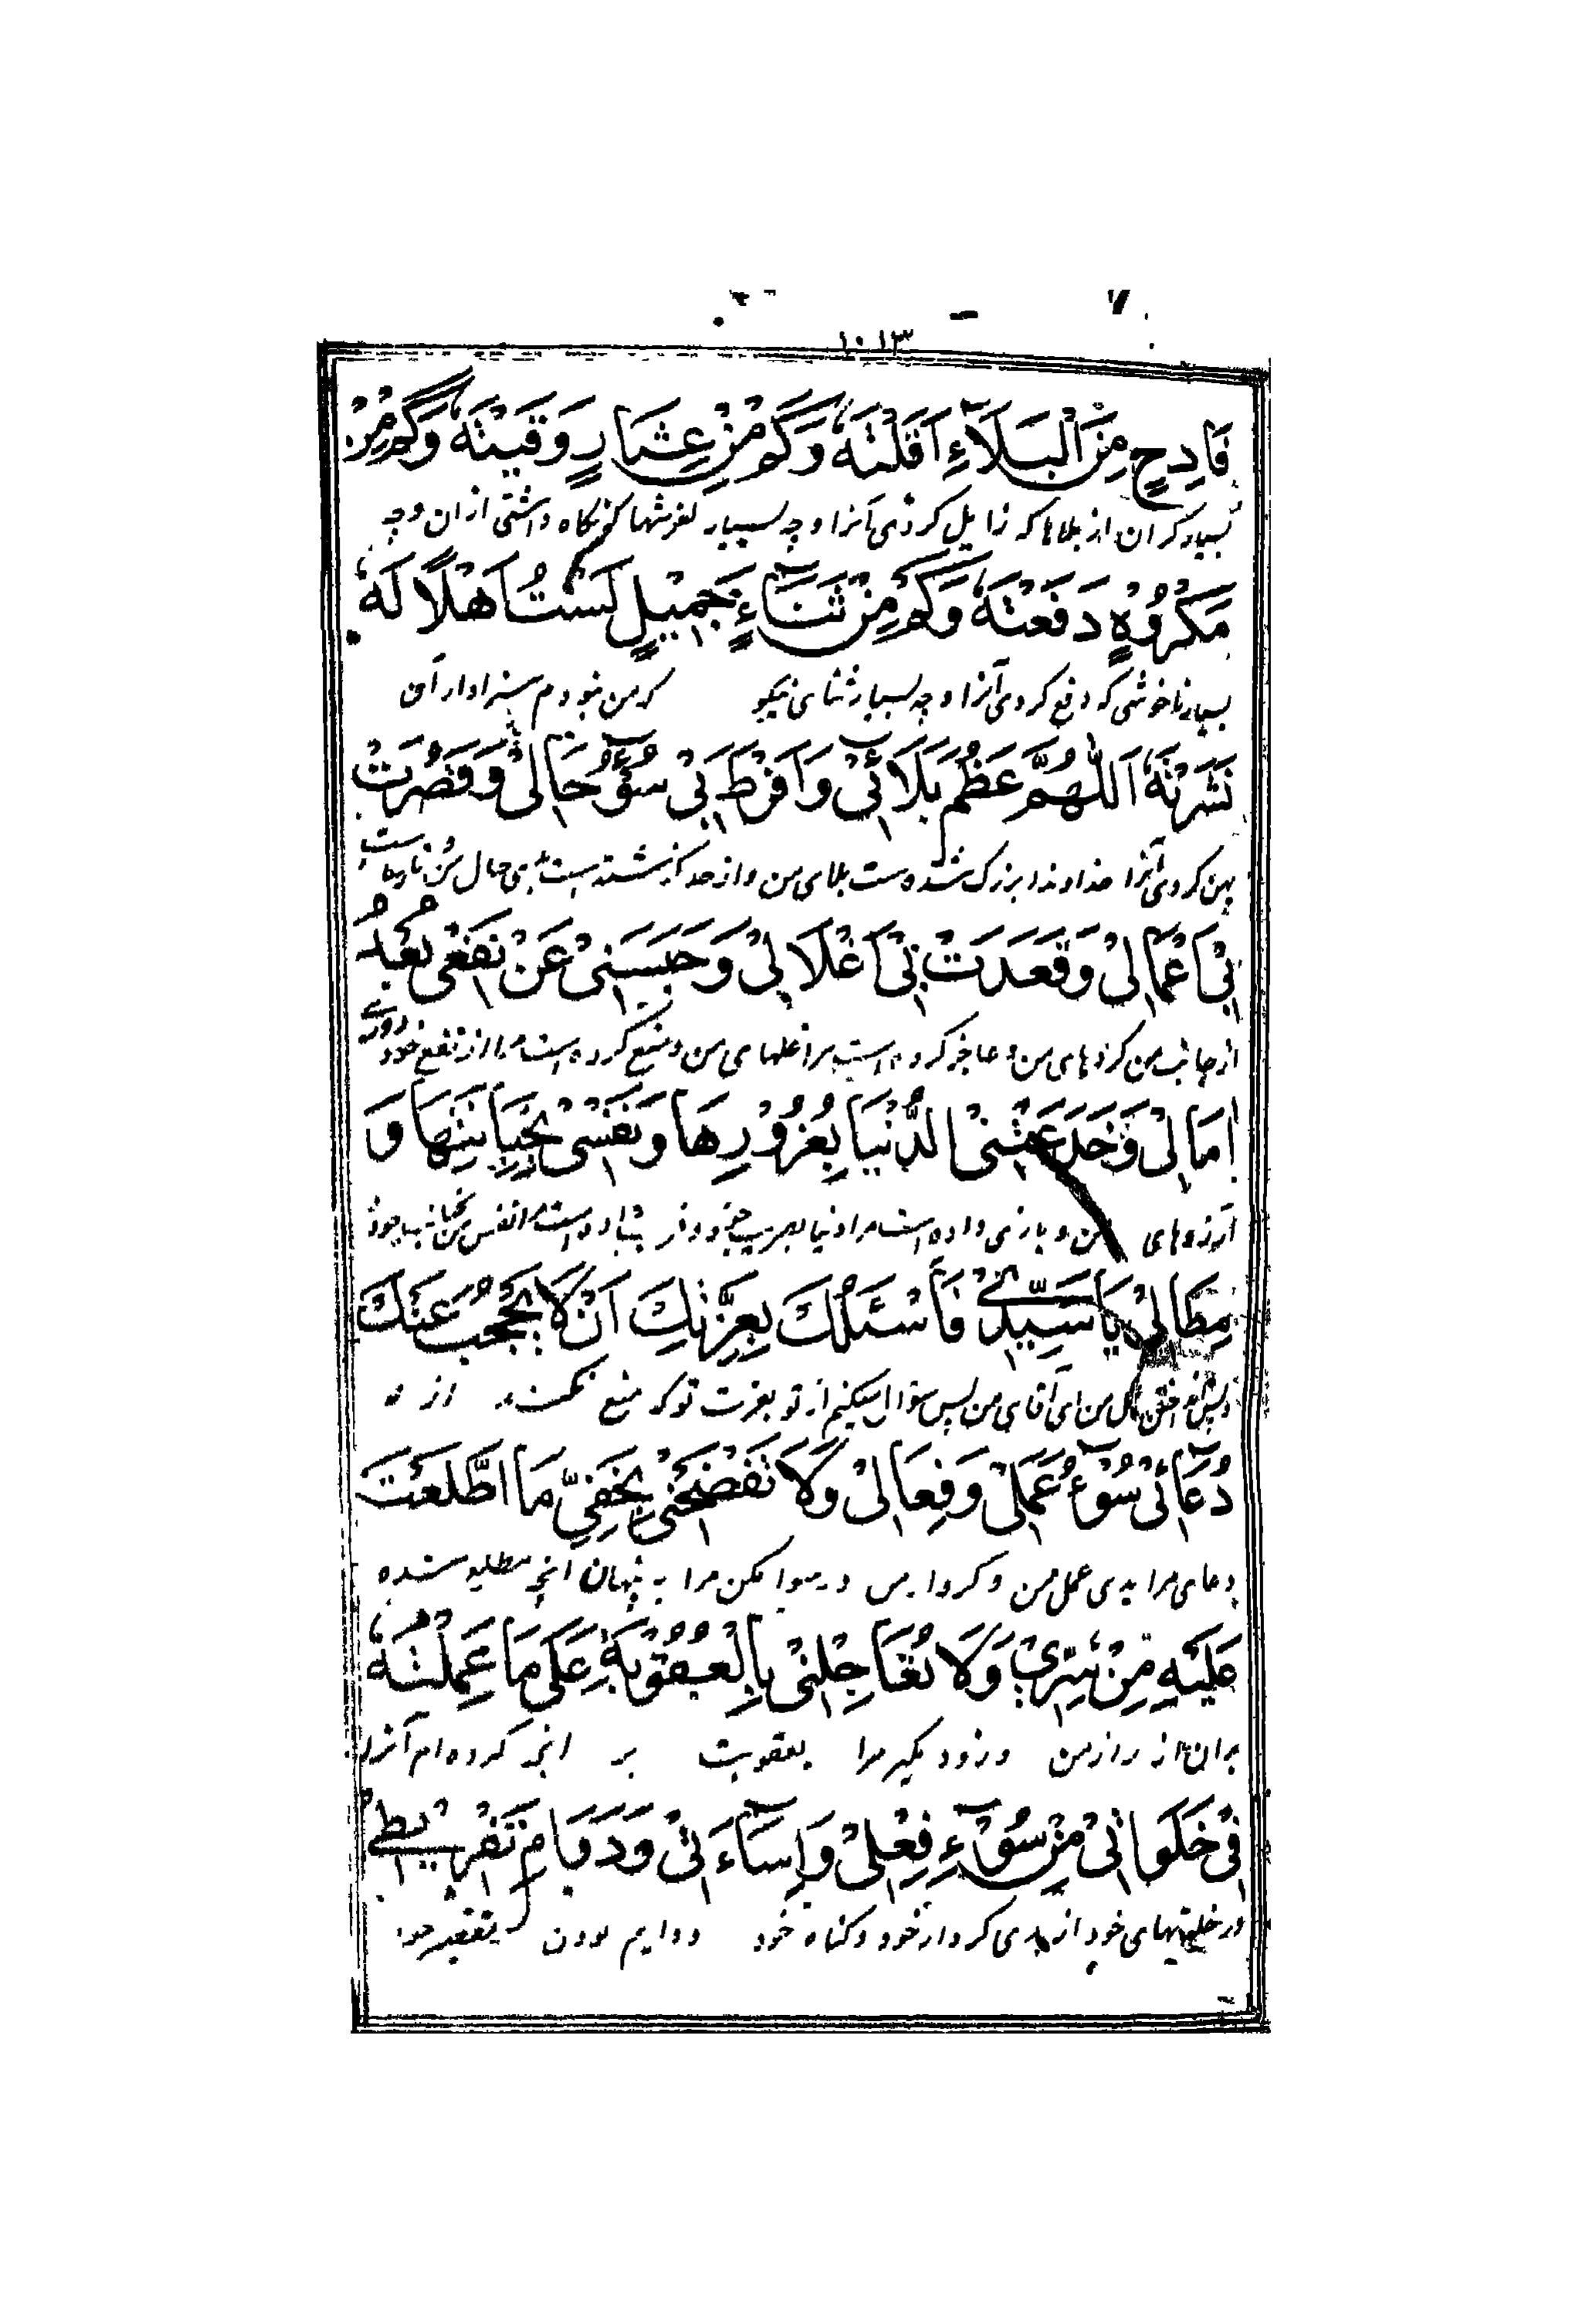 ١٠١٣
فَادِحٍ مِنَ الْبَلَاءِ اَقَلْتَهُ وَكَمْ مِنْ عِثَارٍ وَقَيْتَهُ وَكَمْ مِنْ
بسیار گران از بلاها که زایل کردی آنرا و چه بسیار لغزشها که نگاه داشتی از ان و چه
مَكْرُوْهٍ دَفَعْتَهُ وَكَمْ مِنْ ثَنَاءٍ جَمِيْلٍ لَسْتُ اَهْلًا لَهُ
بسیار ناخوشی که دفع کردی آنرا و چه بسیار ثنای نیکو که من نبودم سزاوار آن
نَشَرْتَهُ اَللّٰهُمَّ عَظُمَ بَلَائِيْ وَاَفْرَطَ بِيْ سُوْٓءُ حَالِيْ وَقَصُرَتْ
پهن کردی آنرا خداوندا بزرگ شده ست بلای من و از حد گذشته است بدی حال من
بِيْ اَعْمَالِيْ وَقَعَدَتْ بِيْ اَغْلَالِيْ وَحَبَسَنِيْ عَنْ نَفْعِيْ بُعْدُ
از جانب من کردهای من و عاجز کرده است مرا غلهای من و منع کرده است مرا از نفع خود دوری
اٰمَالِيْ وَخَدَعَتْنِيْ الدُّنْيَا بِغُرُوْرِهَا وَنَفْسِيْ بِخِيَانَتِهَا وَ
آرزوهای من و بازی داده است مرا دنیا بفریب خود و نفس من بخیانت خود
مِطَالِيْ يَا سَيِّدِيْ فَاَسْئَلُكَ بِعِزَّتِكَ اَنْ لَا يَحْجُبَ عَنْكَ
من ای آقای من پس سؤال میکنم از تو بعزت تو که منع نکند از تو
دُعَائِيْ سُوْٓءُ عَمَلِيْ وَفِعَالِيْ وَلَا تَفْضَحْنِيْ بِخَفِيِّ مَا اطَّلَعْتَ
دعای مرا بدی عمل من و کردار من و رسوا مکن مرا به پنهان انچه مطلع شده
عَلَيْهِ مِنْ سِرِّيْ وَلَا تُعَاجِلْنِيْ بِالْعُقُوْبَةِ عَلٰى مَا عَمِلْتُهُ
بران از راز من و زود مگیر مرا بعقوبت بر انچه کرده ام آنرا
فِيْ خَلَوَاتِيْ مِنْ سُوْٓءِ فِعْلِيْ وَاِسَاءَتِيْ وَدَوَامِ تَفْرِيْطِيْ
در خلوتهای خود از بدی کردار خود و گناه خود و دایم بودن تقصیر خود